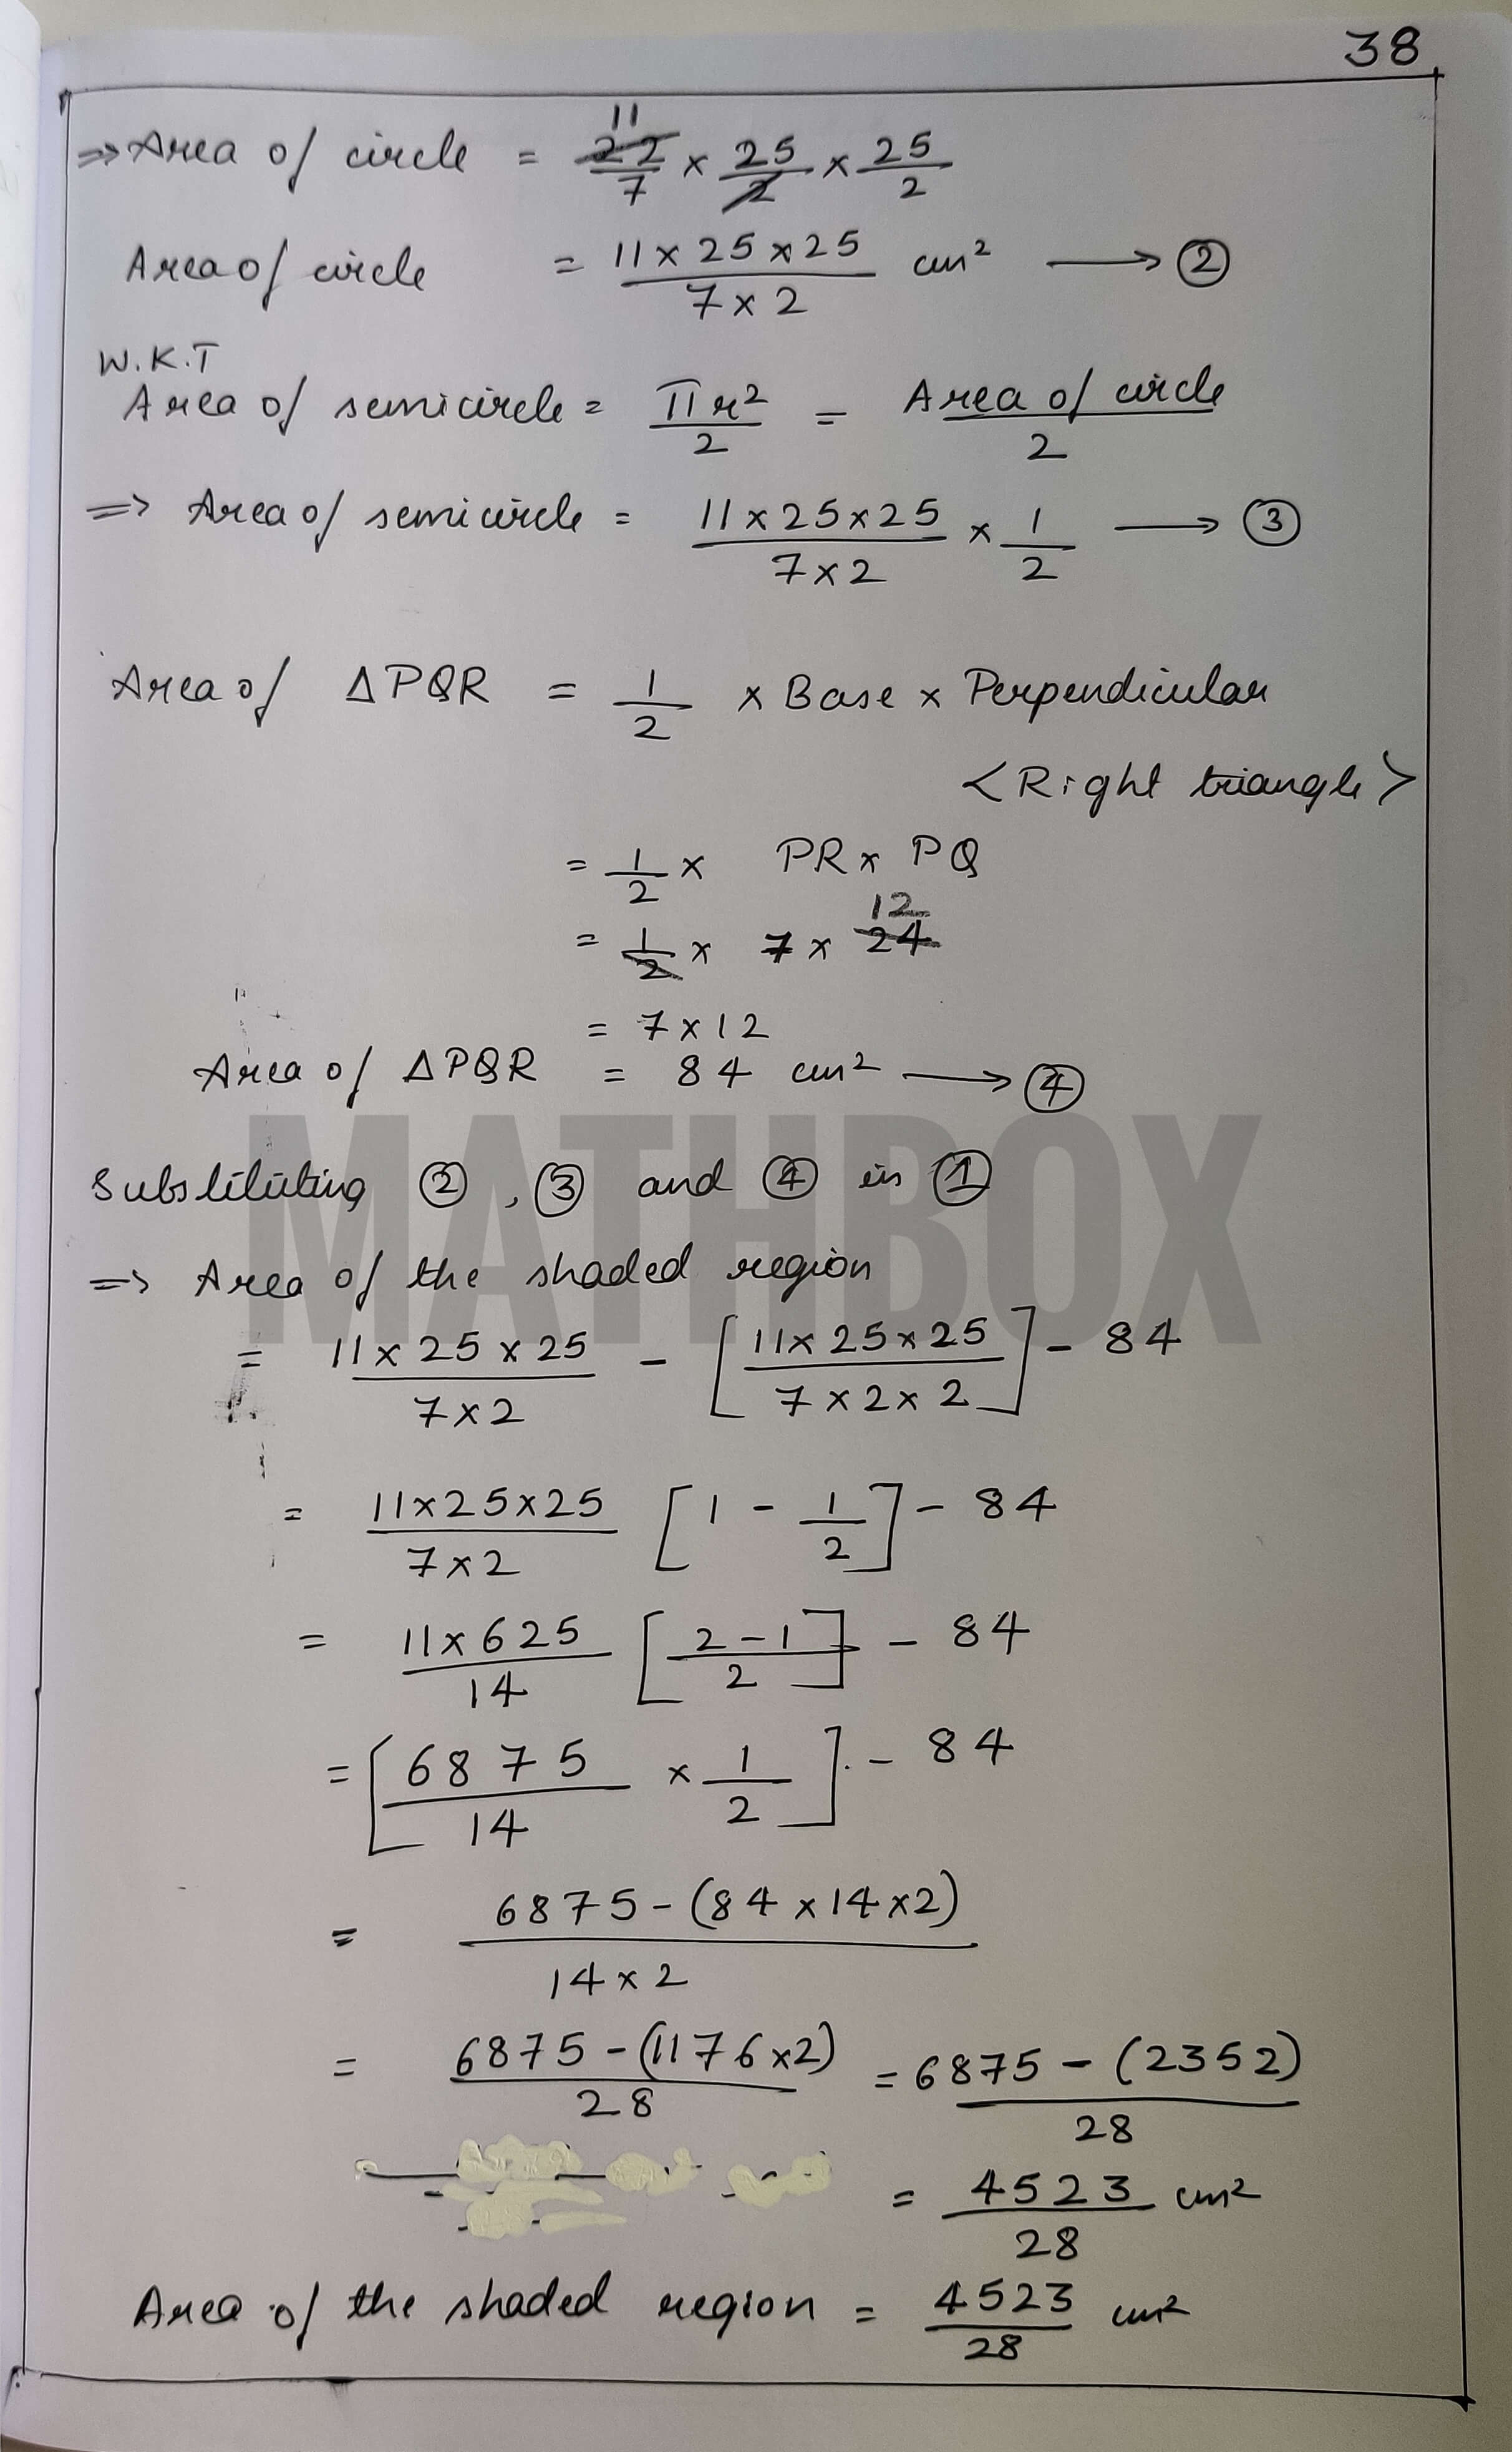 38
⇒ Area of circle = 11 22/7 × 25/2 × 25/2
Area of circle = 11 × 25 × 25 / 7 × 2 cm² ⟶ ②
W.K.T
Area of semicircle = πr²/2 = Area of circle / 2
⇒ Area of semicircle = 11 × 25 × 25 / 7 × 2 × 1/2 ⟶ ③
Area of △PQR = 1/2 × Base × Perpendicular
<Right triangle>
= 1/2 × PR × PQ
= 1/2 × 7 × 12 24
= 7 × 12
Area of △PQR = 84 cm² ⟶ ④
MATHBOX
Substituting ②, ③ and ④ in ①
⇒ Area of the shaded region
= 11 × 25 × 25 / 7 × 2 − [11 × 25 × 25 / 7 × 2 × 2] − 84
= 11 × 25 × 25 / 7 × 2 [1 − 1/2] − 84
= 11 × 625 / 14 [2 − 1 / 2] − 84
= [6875 / 14 × 1/2] − 84
= 6875 − (84 × 14 × 2) / 14 × 2
= 6875 − (1176 × 2) / 28 = 6875 − (2352) / 28
= 4523 / 28 cm²
Area of the shaded region = 4523 / 28 cm²